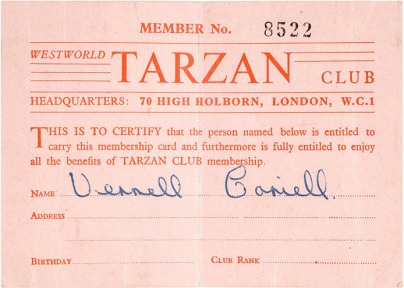 MEMBER No. 8522
WESTWORLD
TARZAN CLUB
HEADQUARTERS: 70 HIGH HOLBORN, LONDON, W.C.1
THIS IS TO CERTIFY that the person named below is entitled to
carry this membership card and furthermore is fully entitled to enjoy
all the benefits of TARZAN CLUB membership.
NAME Vernell Coriell.
ADDRESS
BIRTHDAY CLUB RANK